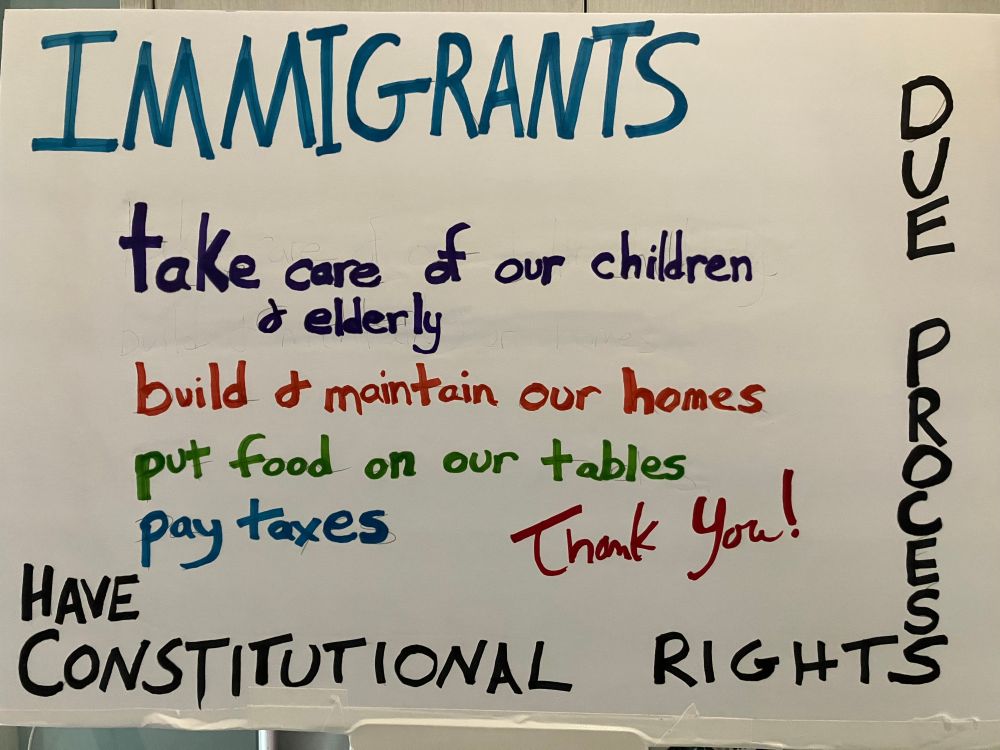 IMMIGRANTS
take care of our children
& elderly
build & maintain our homes
put food on our tables
pay taxes
Thank You!
HAVE
CONSTITUTIONAL RIGHTS
DUE PROCESS